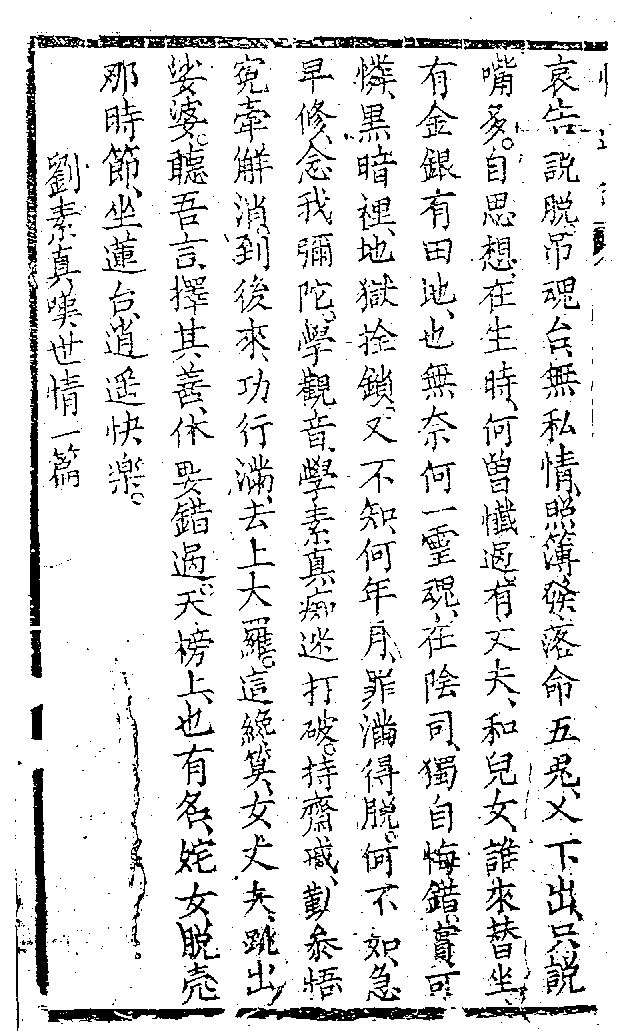 哀告、説脱吊魂台、無私情、照簿發落命五鬼、乂下出、只説
嘴多。自思想、在生時、何曾懺過。有丈夫、和兒女、誰來替坐、
有金銀有田地、也無奈何一霊魂、在陰司、獨自悔錯、實可
憐、黒暗裡、地獄拴鎖。又不知、何年月、罪滿得脱。何不如、急
早修、念我彌陀。學觀音、學素真、痴迷打破。持齋戒、勤叅悟
寃牽解消。到後來、功行滿、去上大羅。這纔算、女丈夫、跳出
娑婆。聽吾言、擇其善、休要錯過。天榜上、也有名、姹女脱壳
那時節、坐蓮台、逍遥快樂。
劉素真嘆世情一篇